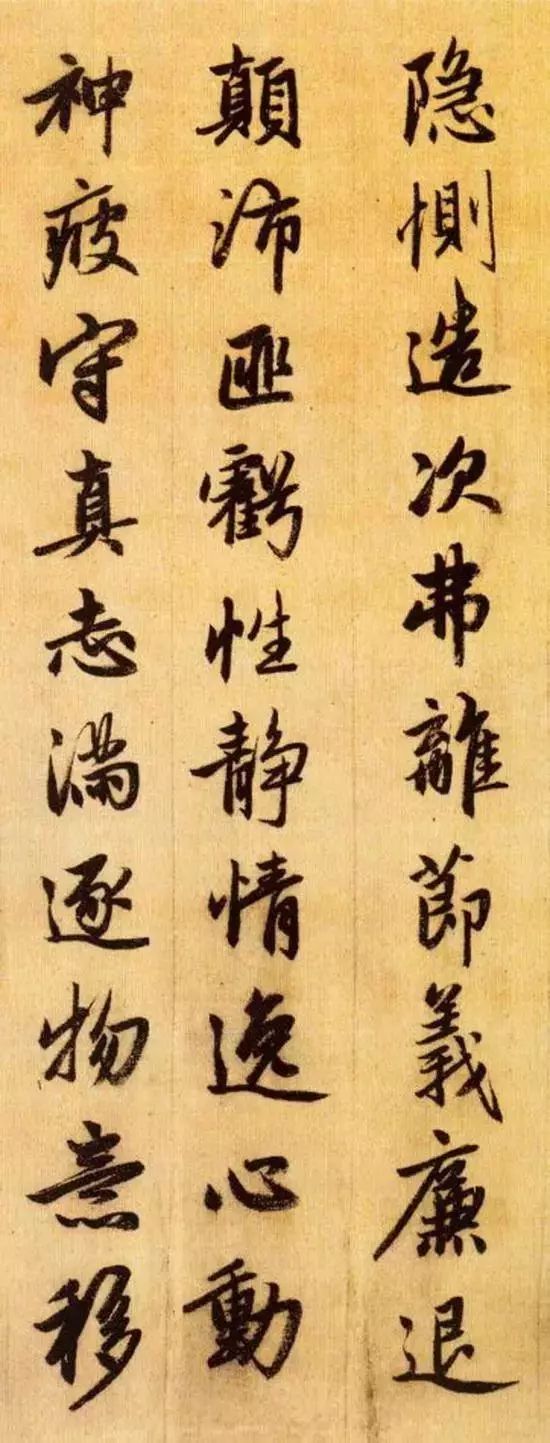 隐惻造次弗離節義廉退
顛沛匪虧性静情逸心動
神疲守真志満逐物意移